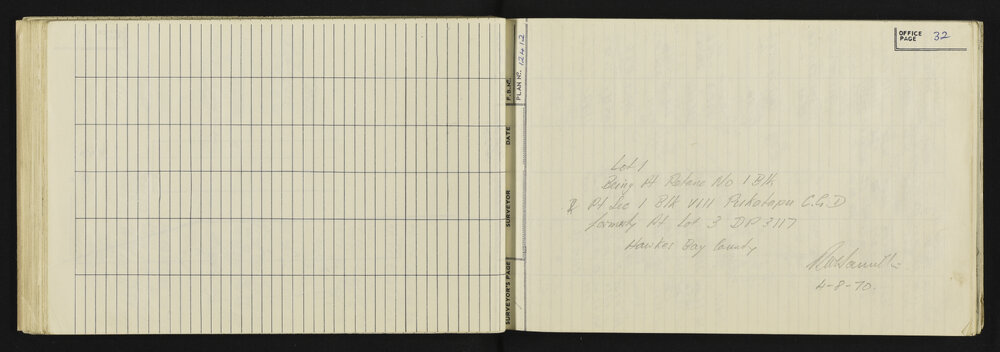 SURVEYOR'S PAGE
SURVEYOR
DATE
F.B. No.
PLAN No. 12412
OFFICE
PAGE 32
Lot 1
Being Pt Petane No 1 Blk
& Pt Sec 1 Blk VIII Puketapu C.G.D
formerly Pt Lot 3 DP 3117
Hawkes Bay County
4-8-70.